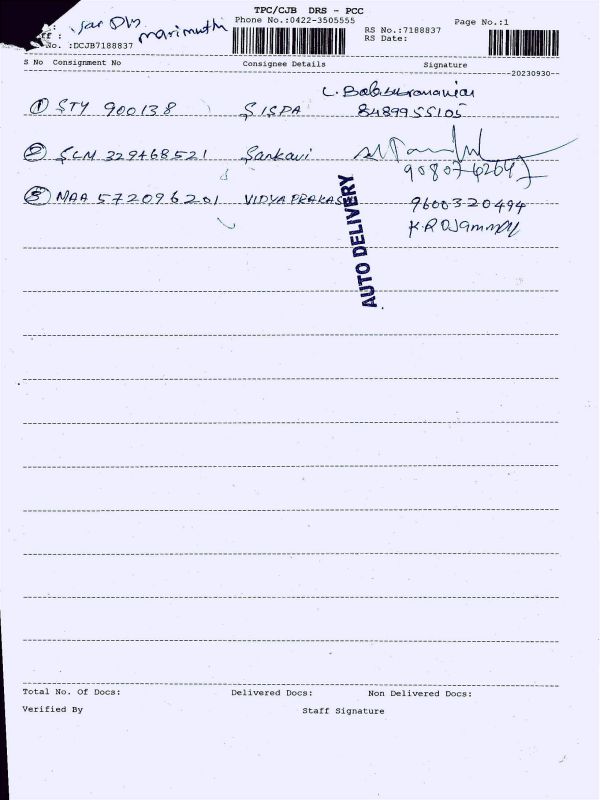 TPC/CJB DRS - PCC
Phone No.:0422-3505555
Page No.:1
marimuthu
RS No.:7188837
RS Date:
No. :DCJB7188837
S No Consignment No Consignee Details Signature
20230930
L. Balasubramanian
① STY 900138 SISPA 8489955105
② SLM 329468521 Sankavi
③ MAA 572096201 VIDYAPRAKASH 9600320494
AUTO DELIVERY
Total No. Of Docs: Delivered Docs: Non Delivered Docs:
Verified By Staff Signature